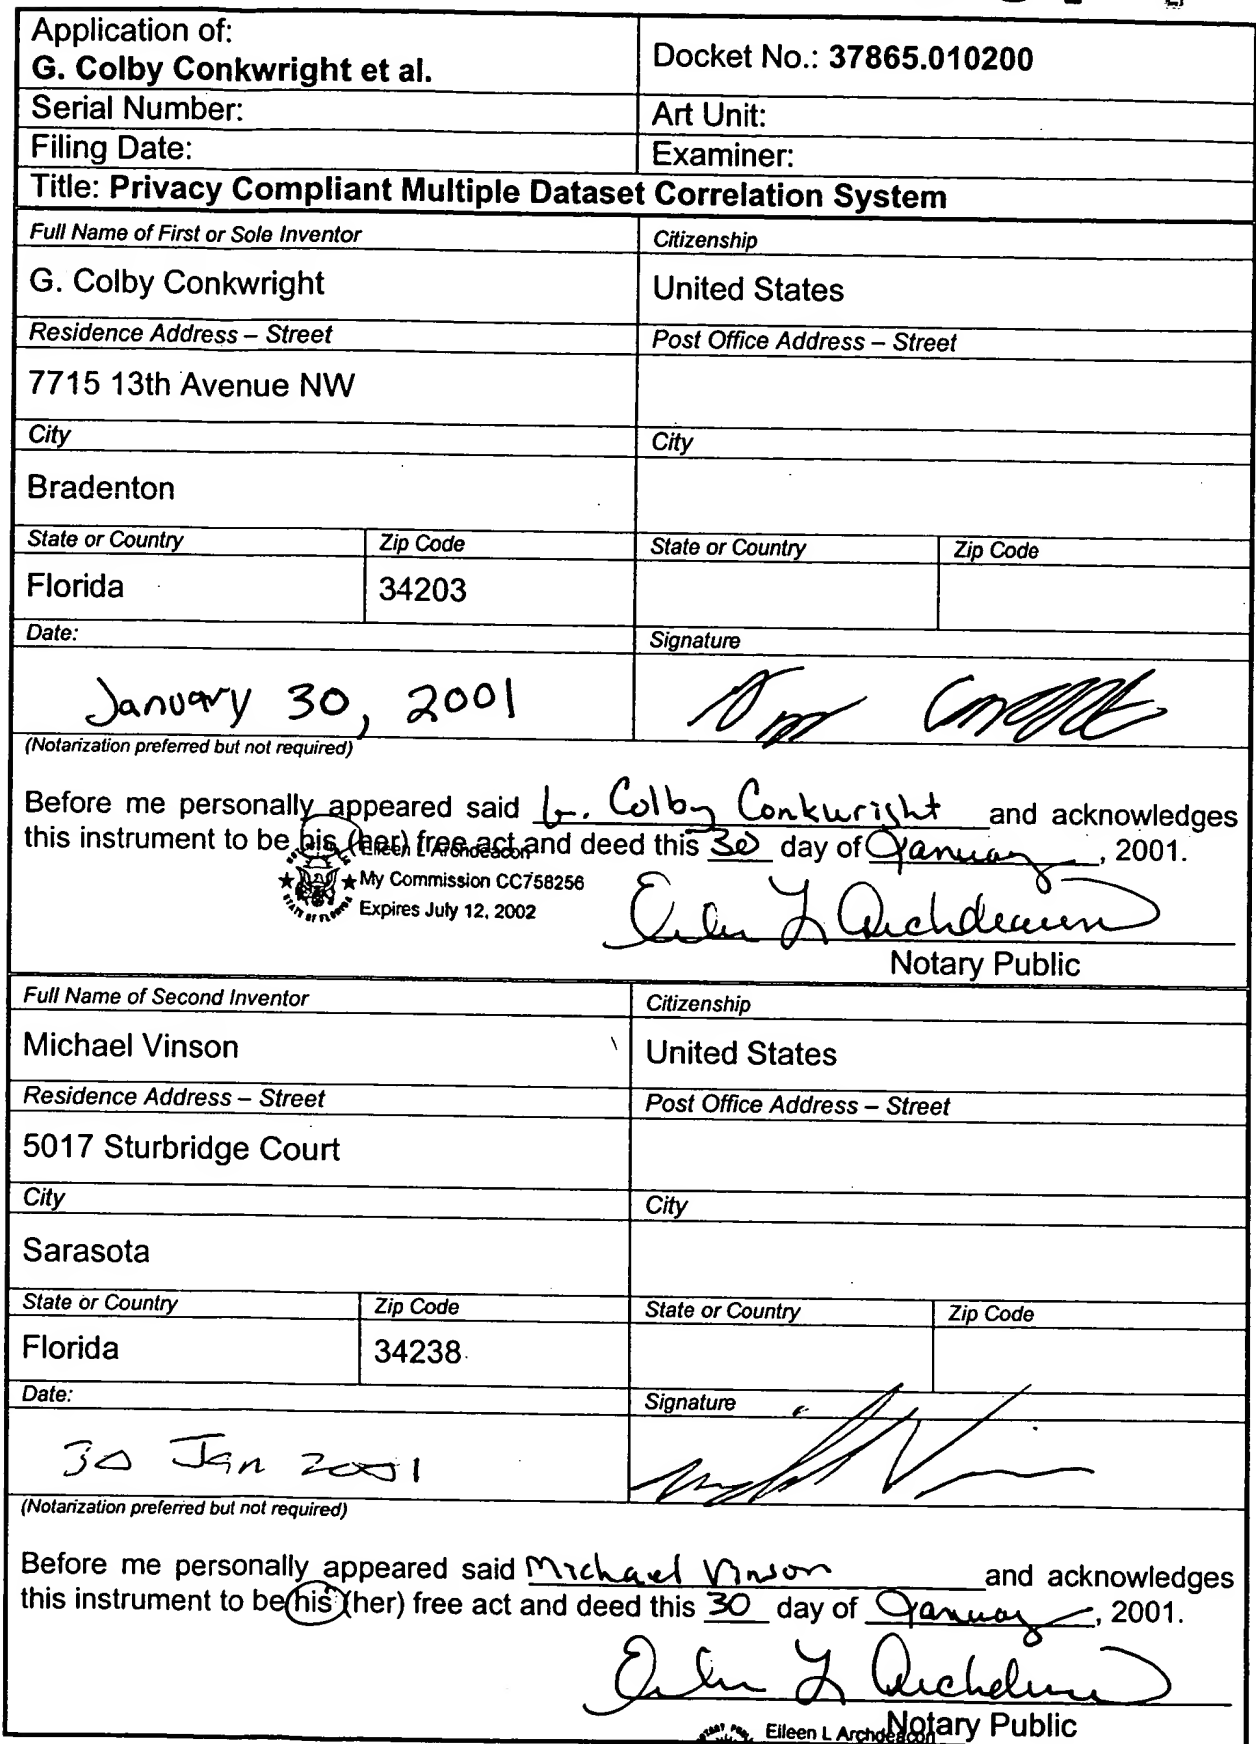 Application of:
G. Colby Conkwright et al.
Docket No.: 37865.010200
Serial Number:
Art Unit:
Filing Date:
Examiner:
Title: Privacy Compliant Multiple Dataset Correlation System
Full Name of First or Sole Inventor
Citizenship
G. Colby Conkwright
United States
Residence Address – Street
Post Office Address – Street
7715 13th Avenue NW
City
City
Bradenton
State or Country
Zip Code
State or Country
Zip Code
Florida
34203
Date:
Signature
January 30, 2001
(Notarization preferred but not required)
Before me personally appeared said G. Colby Conkwright and acknowledges
this instrument to be his (her) free act and deed this 30 day of January, 2001.
Eileen L Archdeacon
My Commission CC758256
Expires July 12, 2002
STATE OF FLORIDA
Eileen L Archdeacon
Notary Public
Full Name of Second Inventor
Citizenship
Michael Vinson
United States
Residence Address – Street
Post Office Address – Street
5017 Sturbridge Court
City
City
Sarasota
State or Country
Zip Code
State or Country
Zip Code
Florida
34238
Date:
Signature
30 Jan 2001
(Notarization preferred but not required)
Before me personally appeared said Michael Vinson and acknowledges
this instrument to be his (her) free act and deed this 30 day of January, 2001.
Eileen L Archdeacon
Notary Public
Eileen L Archdeacon